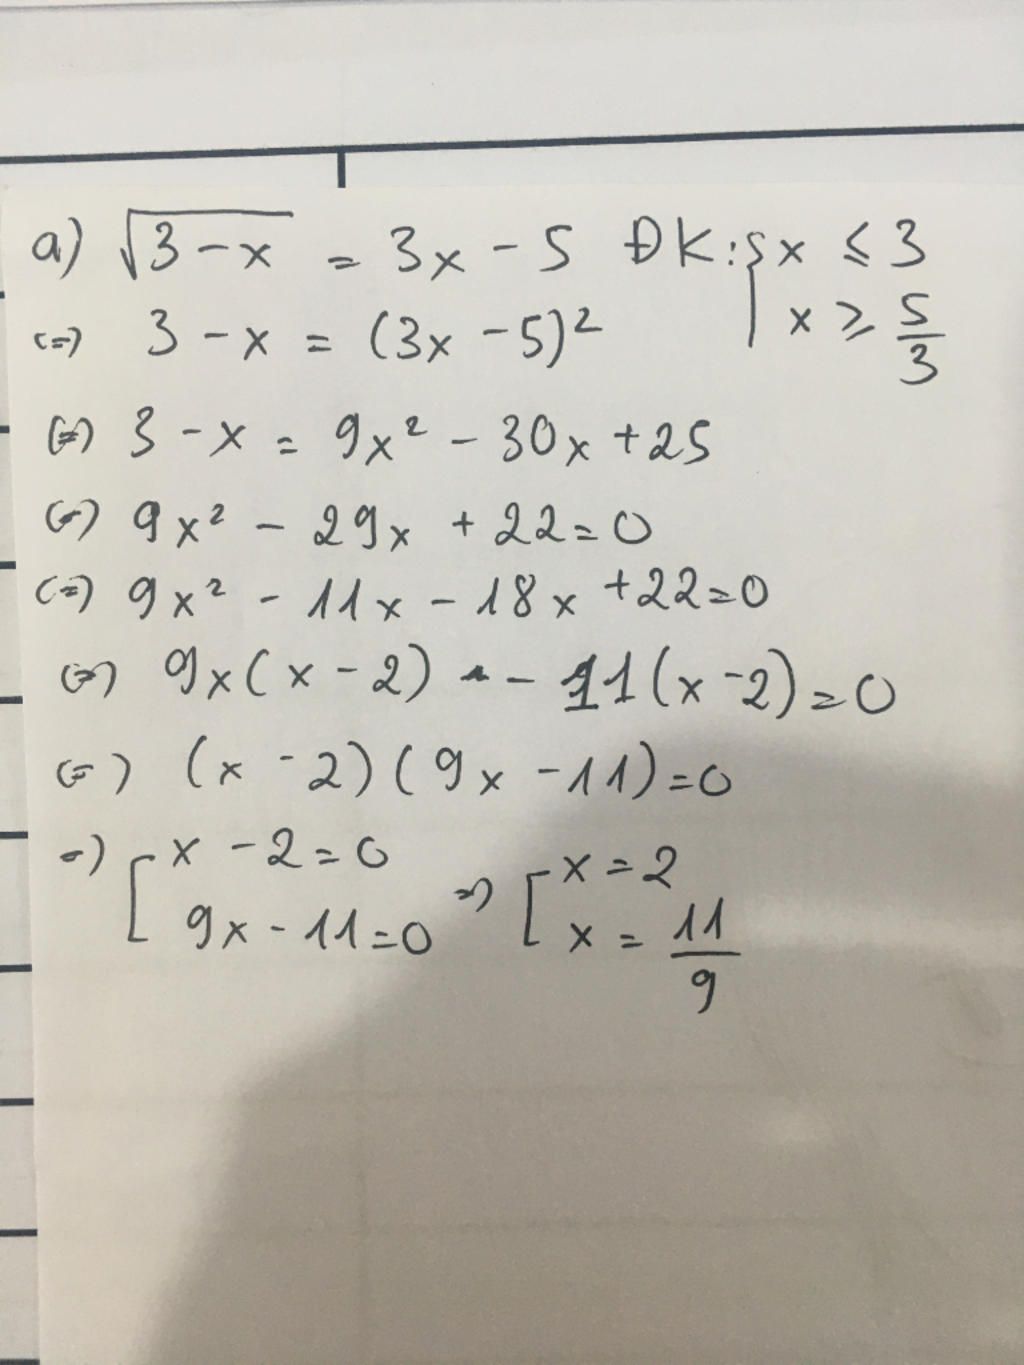 a) √3-x = 3x - 5 ĐK: { x ≤ 3
x ≥ 5/3
(=) 3 - x = (3x - 5)²
(=) 3 - x = 9x² - 30x + 25
(=) 9x² - 29x + 22 = 0
(=) 9x² - 11x - 18x + 22 = 0
(=) 9x(x - 2) - 11(x - 2) = 0
(=) (x - 2)(9x - 11) = 0
=) [ x - 2 = 0 =) [ x = 2
9x - 11 = 0 x = 11/9